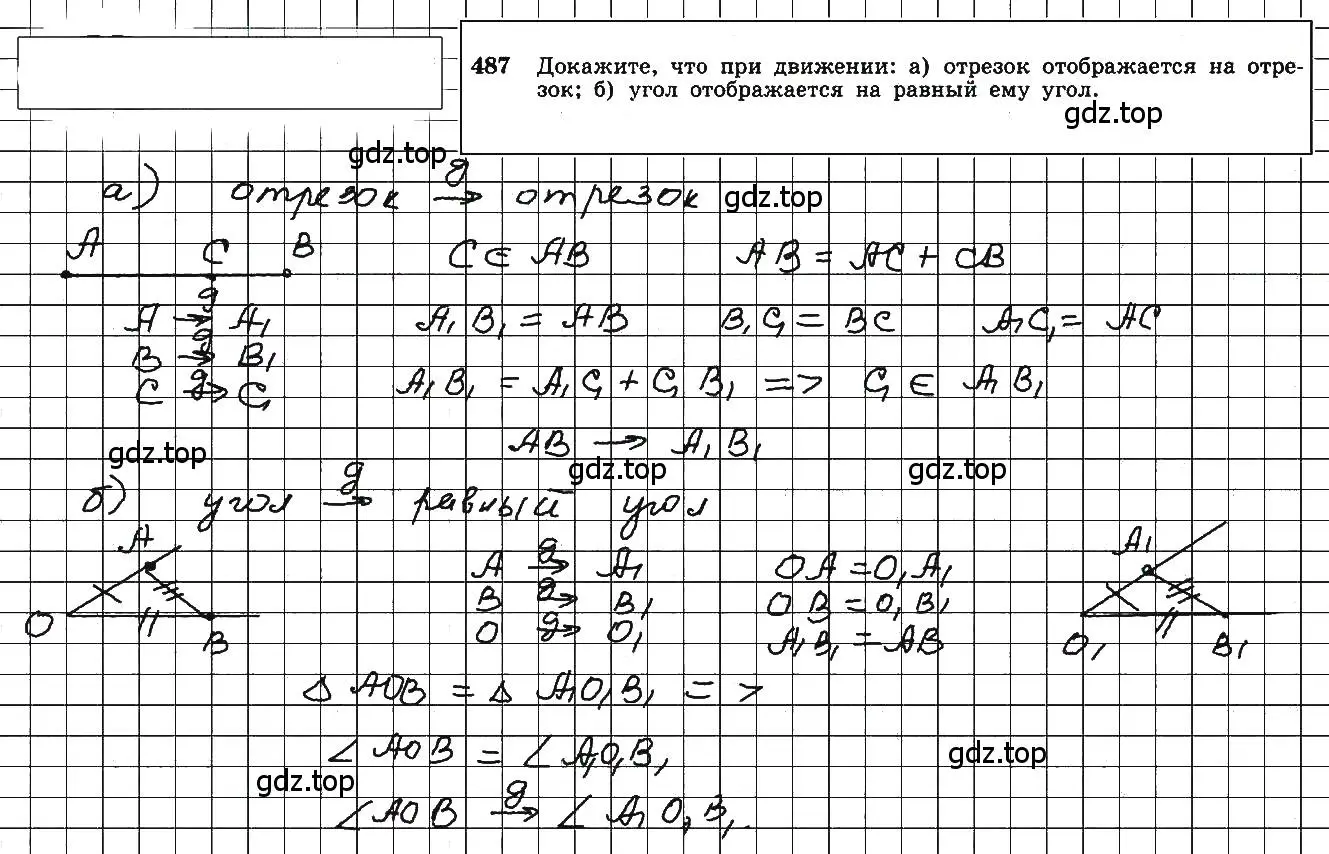 487 Докажите, что при движении: а) отрезок отображается на отре-
зок; б) угол отображается на равный ему угол.
gdz.top
gdz.top
а) отрезок →g отрезок gdz.top
A C B C ∈ AB AB = AC + CB
A →g A₁ A₁B₁ = AB B₁C₁ = BC A₁C₁ = AC
B →g B₁
C →g C₁ A₁B₁ = A₁C₁ + C₁B₁ => C₁ ∈ A₁B₁
AB → A₁B₁
gdz.top gdz.top gdz.top
б) угол →g равный угол
A A₁
A →g A₁ OA = O₁A₁
B →g B₁ OB = O₁B₁
O →g O₁ A₁B₁ = AB
O B O₁ B₁
△ AOB = △ A₁O₁B₁ =>
∠AOB = ∠A₁O₁B₁
gdz.top gdz.top
∠AOB →g ∠A₁O₁B₁.